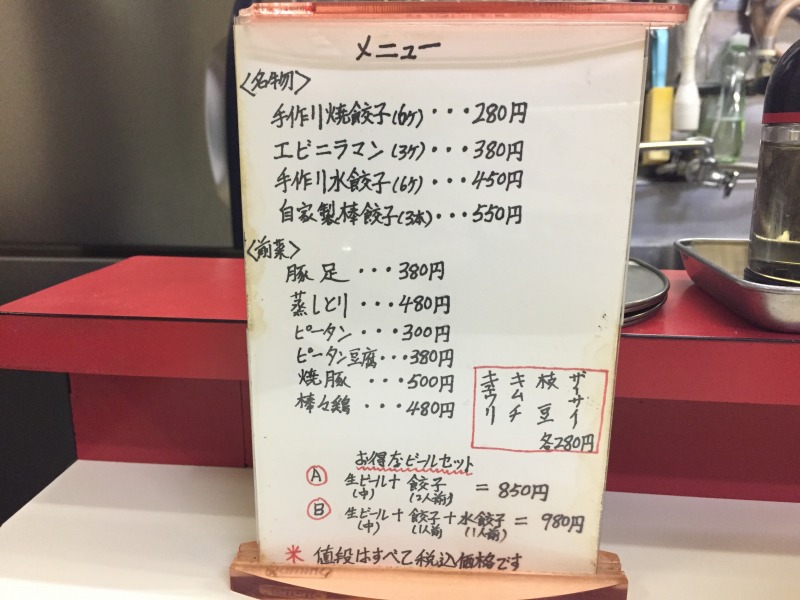 メニュー
〈名物〉
手作り焼餃子(6ケ)・・・280円
エビニラマン(3ケ)・・・380円
手作り水餃子(6ケ)・・・450円
自家製棒餃子(3本)・・・550円
〈前菜〉
豚足・・・380円
蒸しどり・・・480円
ピータン・・・300円
ピータン豆腐・・・380円
焼豚・・・500円
棒々鶏・・・480円
ザーサイ
枝豆
キムチ
キュウリ
各280円
お得なビールセット
Ⓐ 生ビール(中)+餃子(2人前)=850円
Ⓑ 生ビール(中)+餃子(1人前)+水餃子(1人前)=980円
※値段はすべて税込価格です